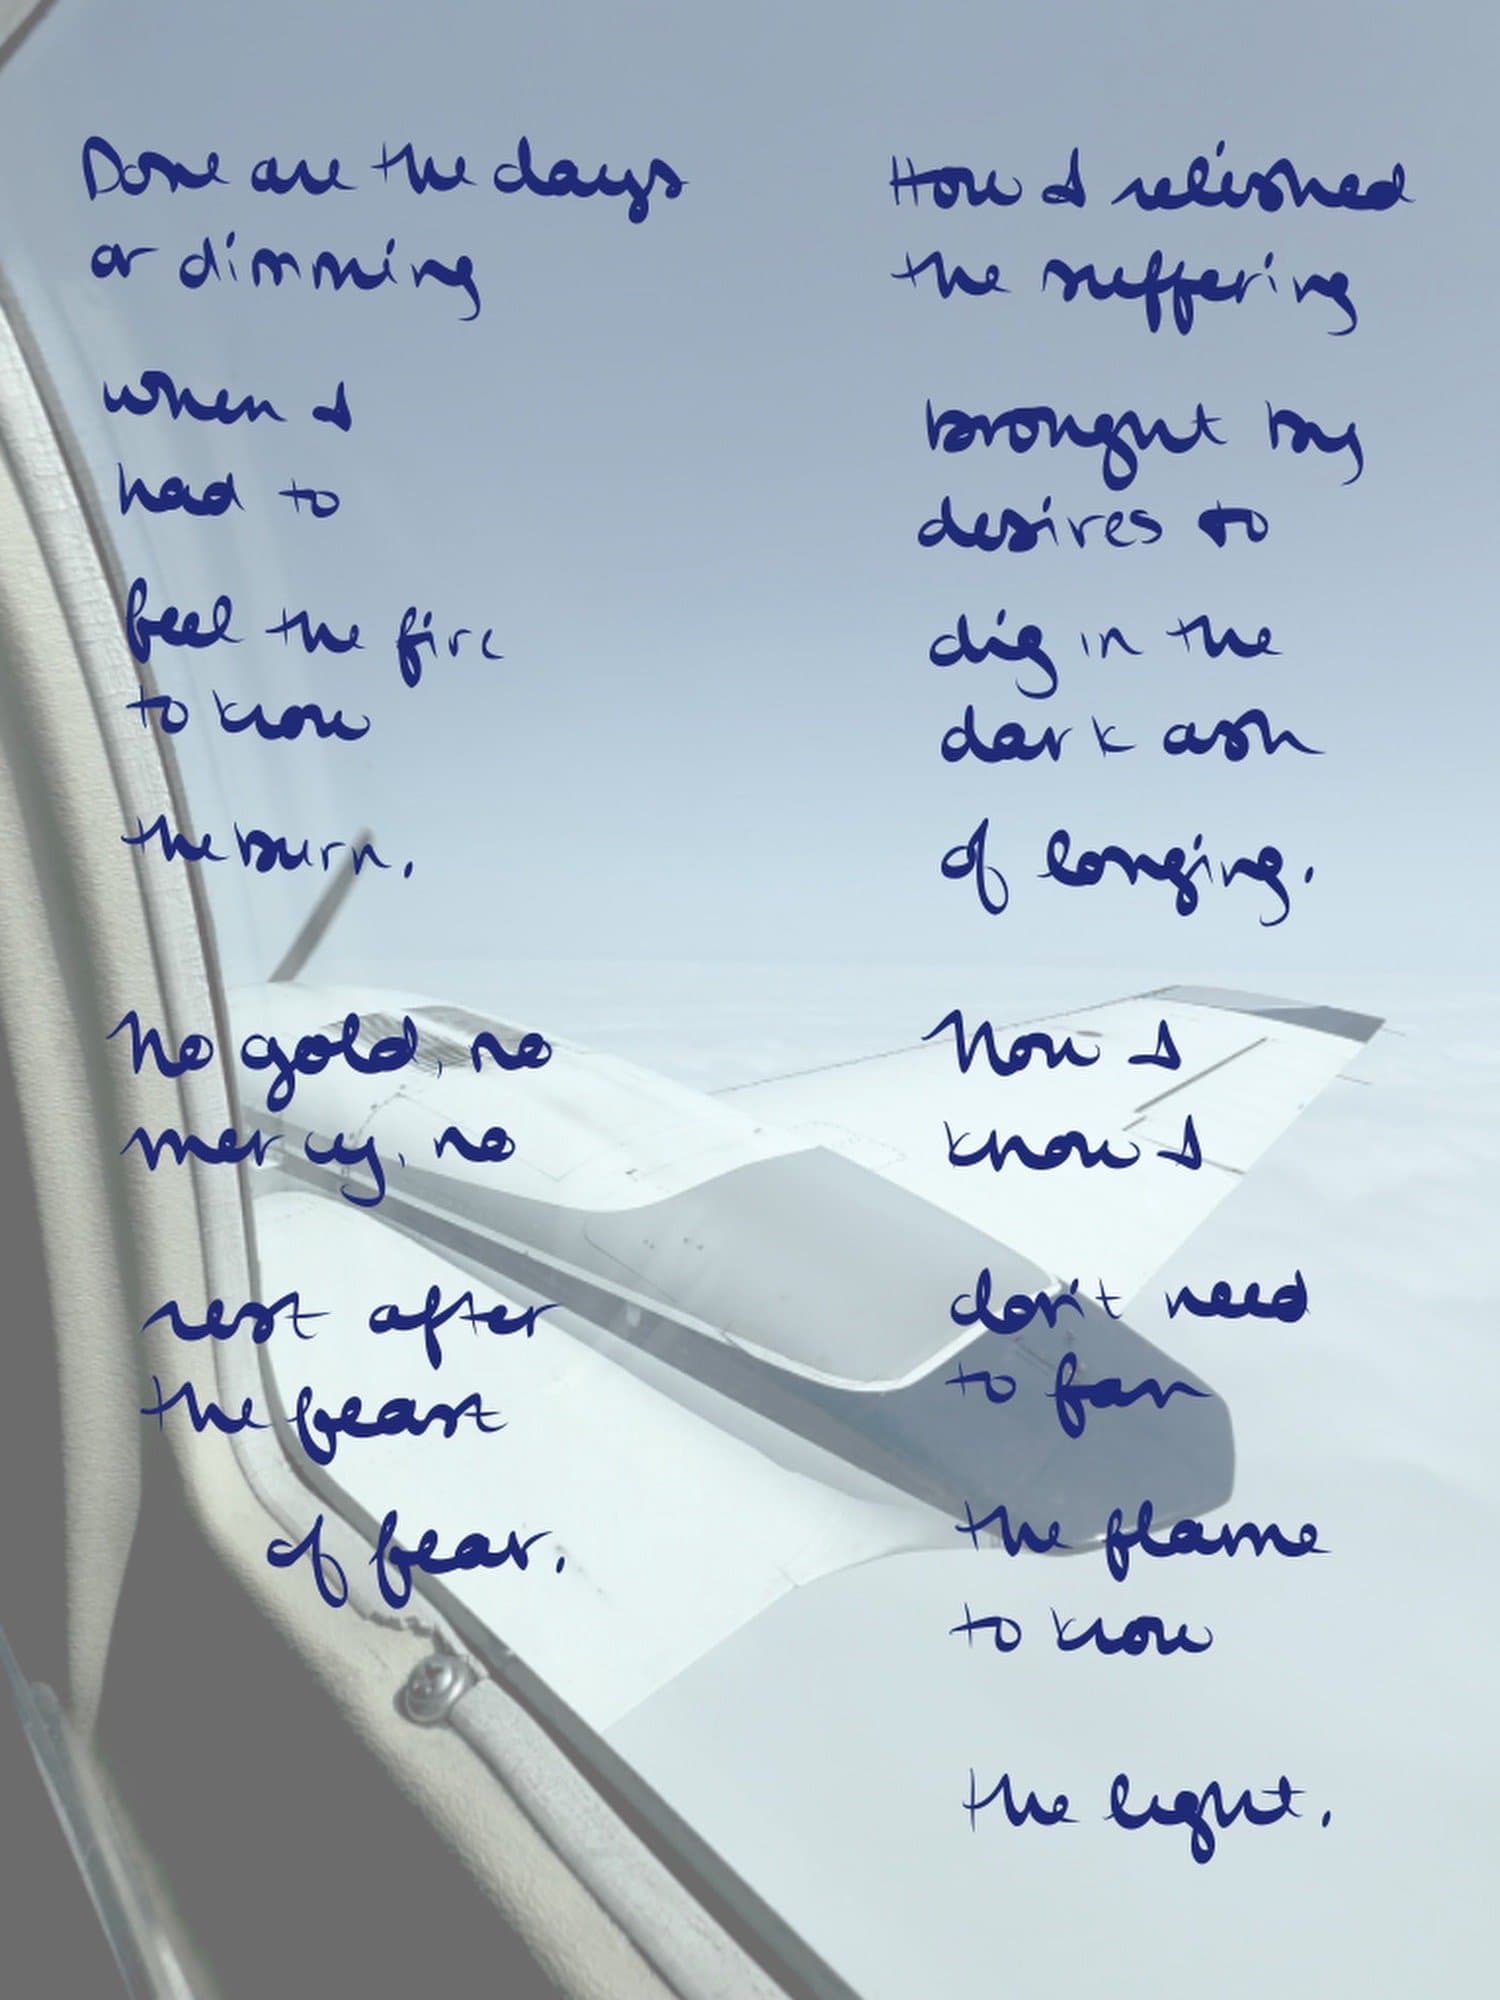 Done are the days
or dimming
when I
had to
feel the fire
to know
the burn.
No gold, no
mercy, no
rest after
the feast
of fear.
How I relished
the suffering
brought by
desires to
dig in the
dark ash
of longing.
Now I
know I
don't need
to fan
the flame
to know
the light.